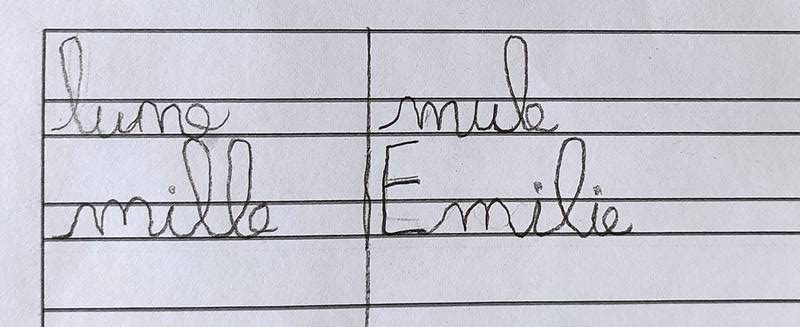 lune mule
mille Emilie